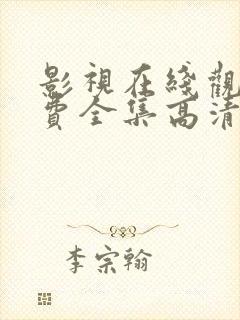 影視在綫觀
費全集高清
李宗翰